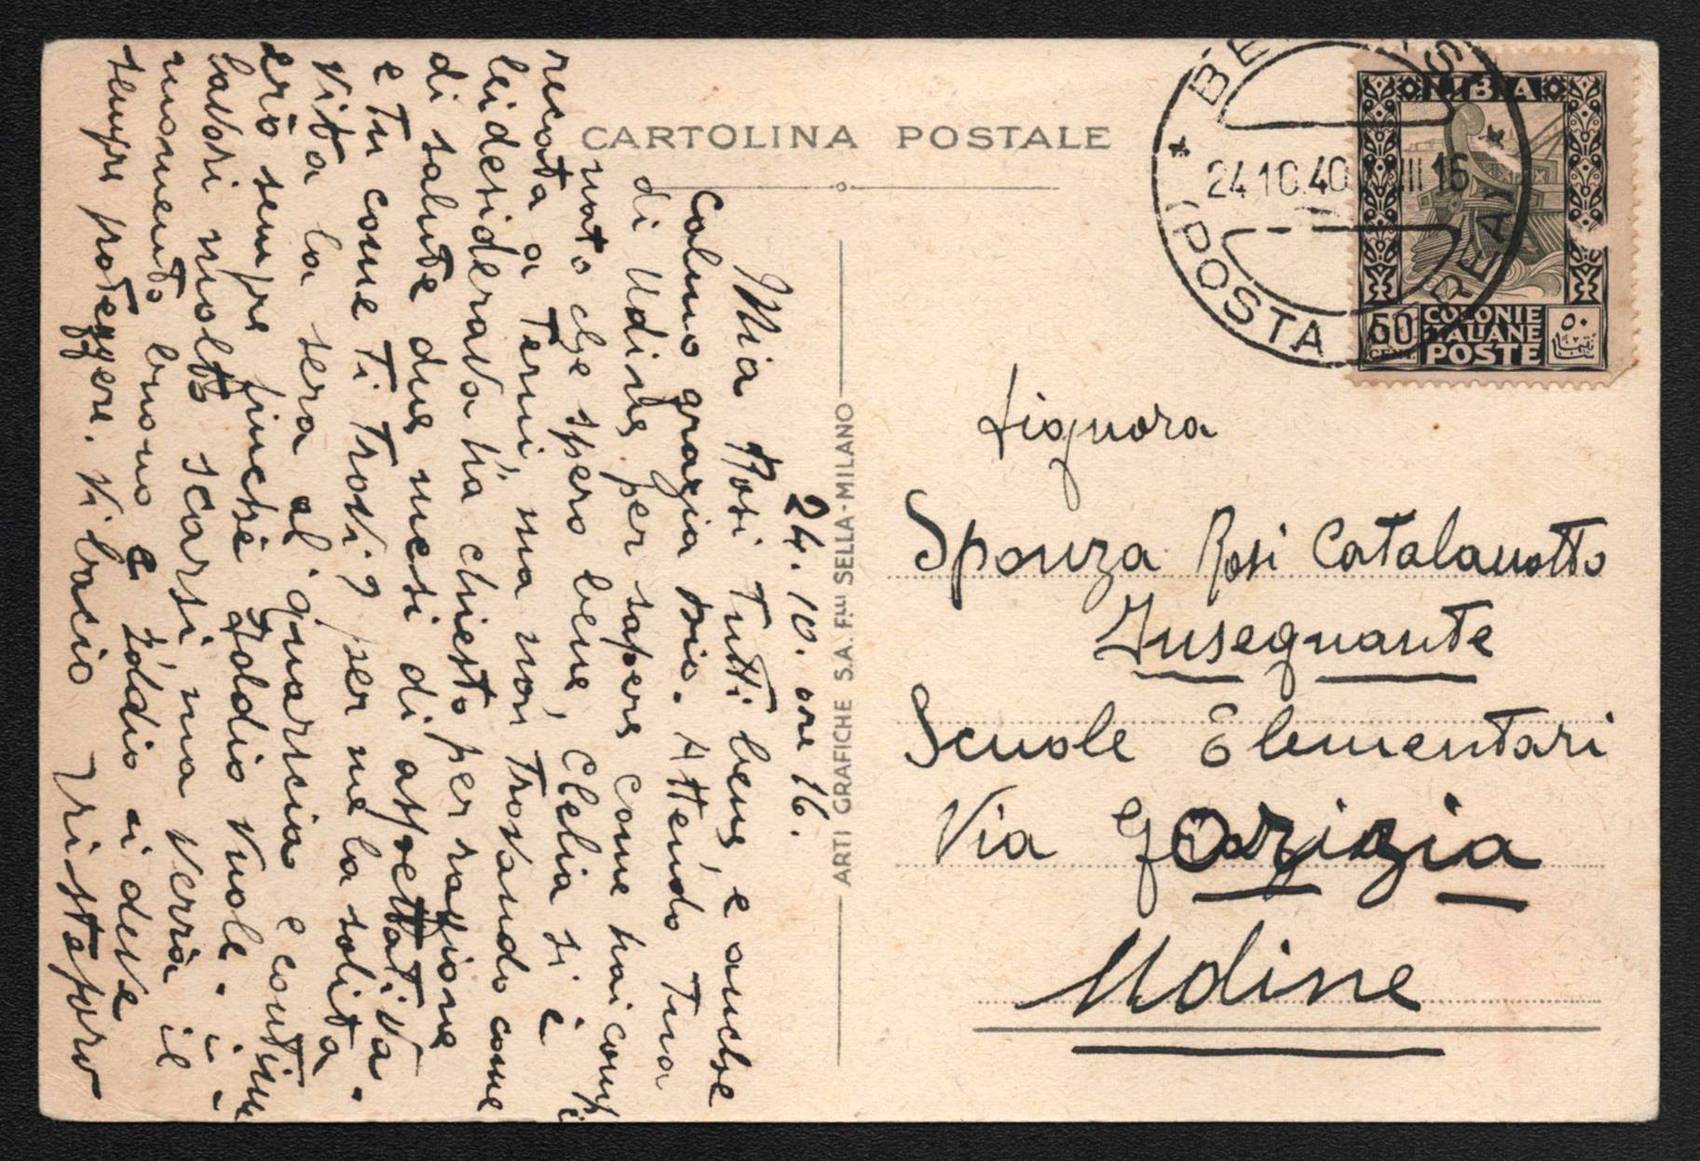 CARTOLINA POSTALE
24.10.40
16
POSTA AEREA
LIBIA
50
CENT.
COLONIE
ITALIANE
POSTE
٥٠
ARTI GRAFICHE S.A. F.LLI SELLA - MILANO
24. 10. ore 16.
Mia Rosi Tutti bene, e anche
calmo grazia Dio. Attendo Tua
di Udine per sapere come hai comp
nuto che spero bene, Clelia si è
recata a Terni, ma non Trovando come
lei desiderava ha chiesto per ragione
di salute due mesi di aspettativa.
e Tu come Ti Trovi? per me la solita
vita la sera al guarscia e contin
erò sempre finchè Iddio vuole. i
lavori molto scarsi, ma verrà il
momento buono e Iddio ci deve
sempre proteggere. Vi bacio Cristoforo
Signora
Sponza Rosi Catalanotto
Insegnante
Scuole Elementari
Via Gorizia
Udine